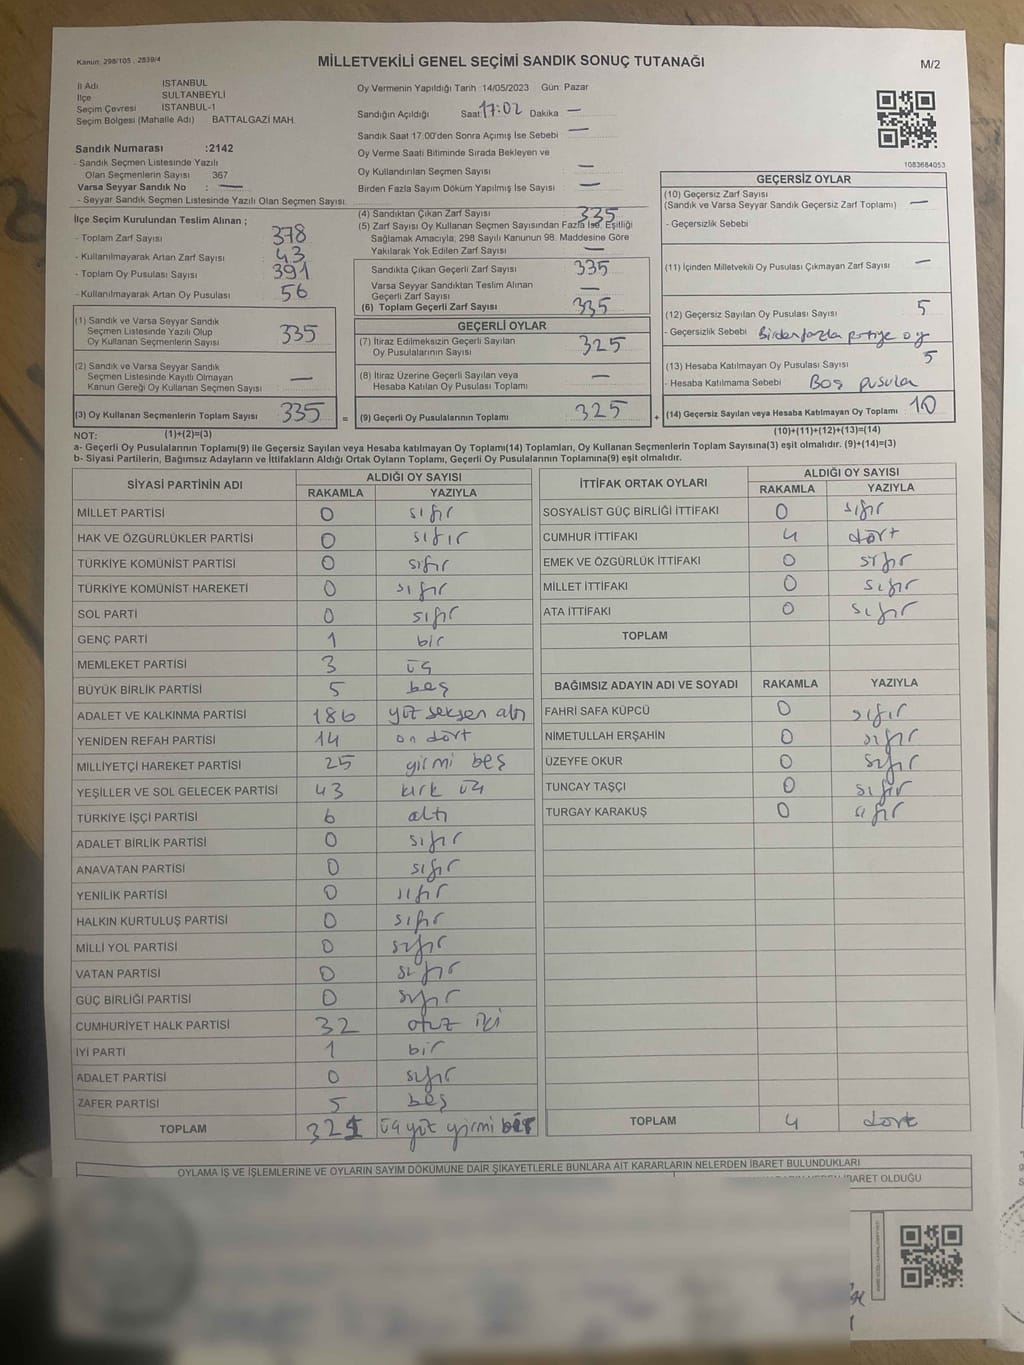 Kanun: 298/105 , 2839/4
MİLLETVEKİLİ GENEL SEÇİMİ SANDIK SONUÇ TUTANAĞI
M/2
İl Adı İSTANBUL
İlçe SULTANBEYLİ
Seçim Çevresi İSTANBUL-1
Seçim Bölgesi (Mahalle Adı) BATTALGAZİ MAH.
Sandık Numarası :2142
- Sandık Seçmen Listesinde Yazılı
Olan Seçmenlerin Sayısı 367
Varsa Seyyar Sandık No : —
- Seyyar Sandık Seçmen Listesinde Yazılı Olan Seçmen Sayısı
Oy Vermenin Yapıldığı Tarih 14/05/2023 Gün: Pazar
Sandığın Açıldığı Saat 17:02 Dakika —
Sandık Saat 17.00'den Sonra Açımış İse Sebebi —
Oy Verme Saati Bitiminde Sırada Bekleyen ve
Oy Kullandırılan Seçmen Sayısı : —
Birden Fazla Sayım Döküm Yapılmış İse Sayısı : —
1083684053
İlçe Seçim Kurulundan Teslim Alınan ;
- Toplam Zarf Sayısı : 378
- Kullanılmayarak Artan Zarf Sayısı : 43
- Toplam Oy Pusulası Sayısı : 391
- Kullanılmayarak Artan Oy Pusulası : 56
(1) Sandık ve Varsa Seyyar Sandık
Seçmen Listesinde Yazılı Olup
Oy Kullanan Seçmenlerin Sayısı 335
(2) Sandık ve Varsa Seyyar Sandık
Seçmen Listesinde Kayıtlı Olmayan
Kanun Gereği Oy Kullanan Seçmen Sayısı —
(3) Oy Kullanan Seçmenlerin Toplam Sayısı 335 =
(4) Sandıktan Çıkan Zarf Sayısı : 335
(5) Zarf Sayısı Oy Kullanan Seçmen Sayısından Fazla İse, Eşitliği
Sağlamak Amacıyla, 298 Sayılı Kanunun 98. Maddesine Göre
Yakılarak Yok Edilen Zarf Sayısı : —
Sandıkta Çıkan Geçerli Zarf Sayısı 335
Varsa Seyyar Sandıktan Teslim Alınan
Geçerli Zarf Sayısı —
(6) Toplam Geçerli Zarf Sayısı 335
GEÇERLİ OYLAR
(7) İtiraz Edilmeksizin Geçerli Sayılan
Oy Pusulalarının Sayısı 325
(8) İtiraz Üzerine Geçerli Sayılan veya
Hesaba Katılan Oy Pusulası Toplamı —
(9) Geçerli Oy Pusulalarının Toplamı 325 +
GEÇERSİZ OYLAR
(10) Geçersiz Zarf Sayısı
(Sandık ve Varsa Seyyar Sandık Geçersiz Zarf Toplamı) —
- Geçersizlik Sebebi
(11) İçinden Milletvekili Oy Pusulası Çıkmayan Zarf Sayısı —
(12) Geçersiz Sayılan Oy Pusulası Sayısı 5
- Geçersizlik Sebebi Birden fazla partiye oy
(13) Hesaba Katılmayan Oy Pusulası Sayısı 5
- Hesaba Katılmama Sebebi Boş pusula
(14) Geçersiz Sayılan veya Hesaba Katılmayan Oy Toplamı 10
NOT: (1)+(2)=(3)
(10)+(11)+(12)+(13)=(14)
a- Geçerli Oy Pusulalarının Toplamı(9) ile Geçersiz Sayılan veya Hesaba katılmayan Oy Toplamı(14) Toplamları, Oy Kullanan Seçmenlerin Toplam Sayısına(3) eşit olmalıdır. (9)+(14)=(3)
b- Siyasi Partilerin, Bağımsız Adayların ve İttifakların Aldığı Ortak Oyların Toplamı, Geçerli Oy Pusulalarının Toplamına(9) eşit olmalıdır.
SİYASİ PARTİNİN ADI ALDIĞI OY SAYISI
RAKAMLA YAZIYLA
MİLLET PARTİSİ 0 sıfır
HAK VE ÖZGÜRLÜKLER PARTİSİ 0 sıfır
TÜRKİYE KOMÜNİST PARTİSİ 0 sıfır
TÜRKİYE KOMÜNİST HAREKETİ 0 sıfır
SOL PARTİ 0 sıfır
GENÇ PARTİ 1 bir
MEMLEKET PARTİSİ 3 üç
BÜYÜK BİRLİK PARTİSİ 5 beş
ADALET VE KALKINMA PARTİSİ 186 yüz seksen altı
YENİDEN REFAH PARTİSİ 14 on dört
MİLLİYETÇİ HAREKET PARTİSİ 25 yirmi beş
YEŞİLLER VE SOL GELECEK PARTİSİ 43 kırk üç
TÜRKİYE İŞÇİ PARTİSİ 6 altı
ADALET BİRLİK PARTİSİ 0 sıfır
ANAVATAN PARTİSİ 0 sıfır
YENİLİK PARTİSİ 0 sıfır
HALKIN KURTULUŞ PARTİSİ 0 sıfır
MİLLİ YOL PARTİSİ 0 sıfır
VATAN PARTİSİ 0 sıfır
GÜÇ BİRLİĞİ PARTİSİ 0 sıfır
CUMHURİYET HALK PARTİSİ 32 otuz iki
İYİ PARTİ 1 bir
ADALET PARTİSİ 0 sıfır
ZAFER PARTİSİ 5 beş
TOPLAM 321 üçyüz yirmi bir
İTTİFAK ORTAK OYLARI ALDIĞI OY SAYISI
RAKAMLA YAZIYLA
SOSYALİST GÜÇ BİRLİĞİ İTTİFAKI 0 sıfır
CUMHUR İTTİFAKI 4 dört
EMEK VE ÖZGÜRLÜK İTTİFAKI 0 sıfır
MİLLET İTTİFAKI 0 sıfır
ATA İTTİFAKI 0 sıfır
TOPLAM
BAĞIMSIZ ADAYIN ADI VE SOYADI RAKAMLA YAZIYLA
FAHRİ SAFA KÜPCÜ 0 sıfır
NİMETULLAH ERŞAHİN 0 sıfır
ÜZEYFE OKUR 0 sıfır
TUNCAY TAŞÇI 0 sıfır
TURGAY KARAKUŞ 0 sıfır
TOPLAM 4 dört
OYLAMA İŞ VE İŞLEMLERİNE VE OYLARIN SAYIM DÖKÜMÜNE DAİR ŞİKAYETLERLE BUNLARA AİT KARARLARIN NELERDEN İBARET BULUNDUKLARI
İBARET OLDUĞU